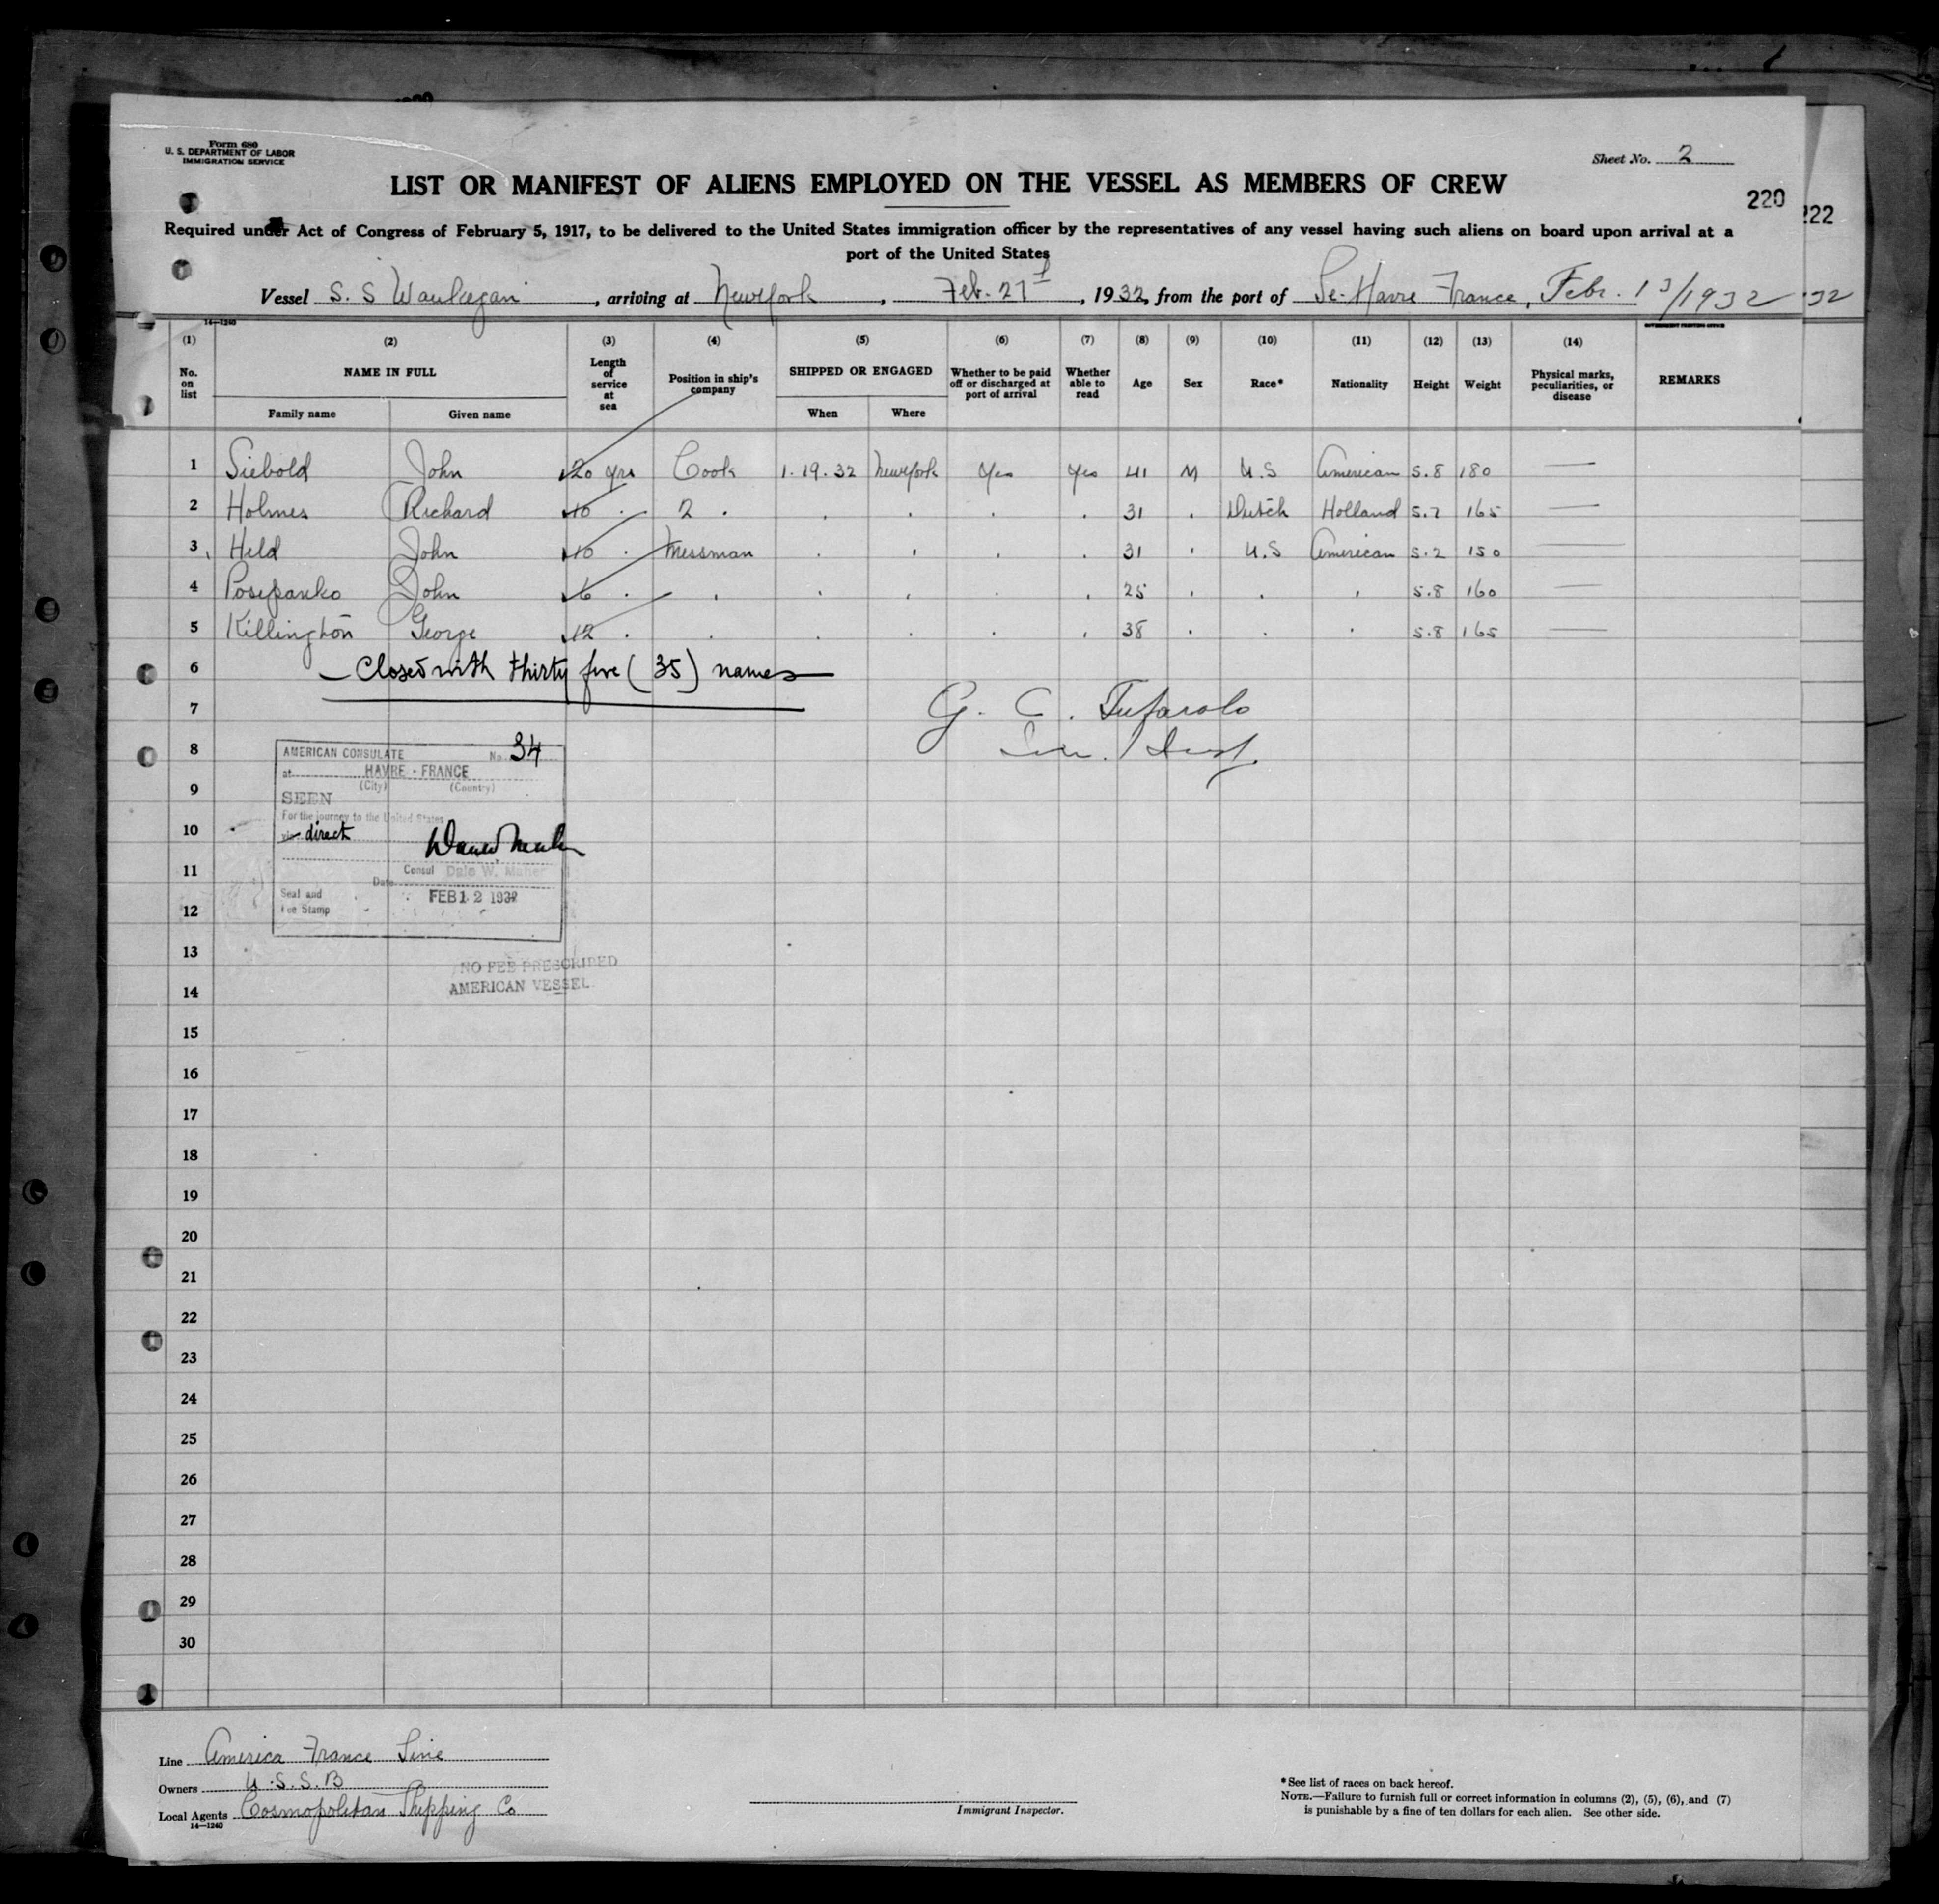 Form 680
U. S. DEPARTMENT OF LABOR
IMMIGRATION SERVICE
Sheet No. 2
LIST OR MANIFEST OF ALIENS EMPLOYED ON THE VESSEL AS MEMBERS OF CREW
220
222
Required under Act of Congress of February 5, 1917, to be delivered to the United States immigration officer by the representatives of any vessel having such aliens on board upon arrival at a
port of the United States
Vessel S. S Waukegan, arriving at New York, Feb. 27, 1932, from the port of Le Havre France, Febr. 13/1932
14-1240
(1) (2) (3) (4) (5) (6) (7) (8) (9) (10) (11) (12) (13) (14)
No. on list NAME IN FULL Length of service at sea Position in ship's company SHIPPED OR ENGAGED Whether to be paid off or discharged at port of arrival Whether able to read Age Sex Race* Nationality Height Weight Physical marks, peculiarities, or disease REMARKS
Family name Given name When Where
1 Siebold John 20 yrs Cook 1.19.32 New York Yes Yes 41 M U.S American 5.8 180 —
2 Holmes Richard 10 . 2 . . . . . 31 . Dutch Holland 5.7 165 —
3 Held John 10 . Messman . . . . 31 . U.S American 5.2 150 —
4 Posepanko John 6 . . . . . . 25 . . . 5.8 160 —
5 Killington George 12 . . . . . . 38 . . . 5.8 165 —
6 Closed with thirty five (35) names
7 G. C.
8
9
10
11
12
13
14
15
16
17
18
19
20
21
22
23
24
25
26
27
28
29
30
AMERICAN CONSULATE No. 34
at HAVRE - FRANCE
(City) (Country)
SEEN
For the journey to the United States
via direct
Consul Dale W. Maher
Date FEB 12 1932
Seal and
Fee Stamp
NO FEE PRESCRIBED
AMERICAN VESSEL
Line America France Line
Owners U.S.S.B
Local Agents Cosmopolitan Shipping Co
14-1240
Immigrant Inspector.
*See list of races on back hereof.
NOTE.—Failure to furnish full or correct information in columns (2), (5), (6), and (7)
is punishable by a fine of ten dollars for each alien. See other side.